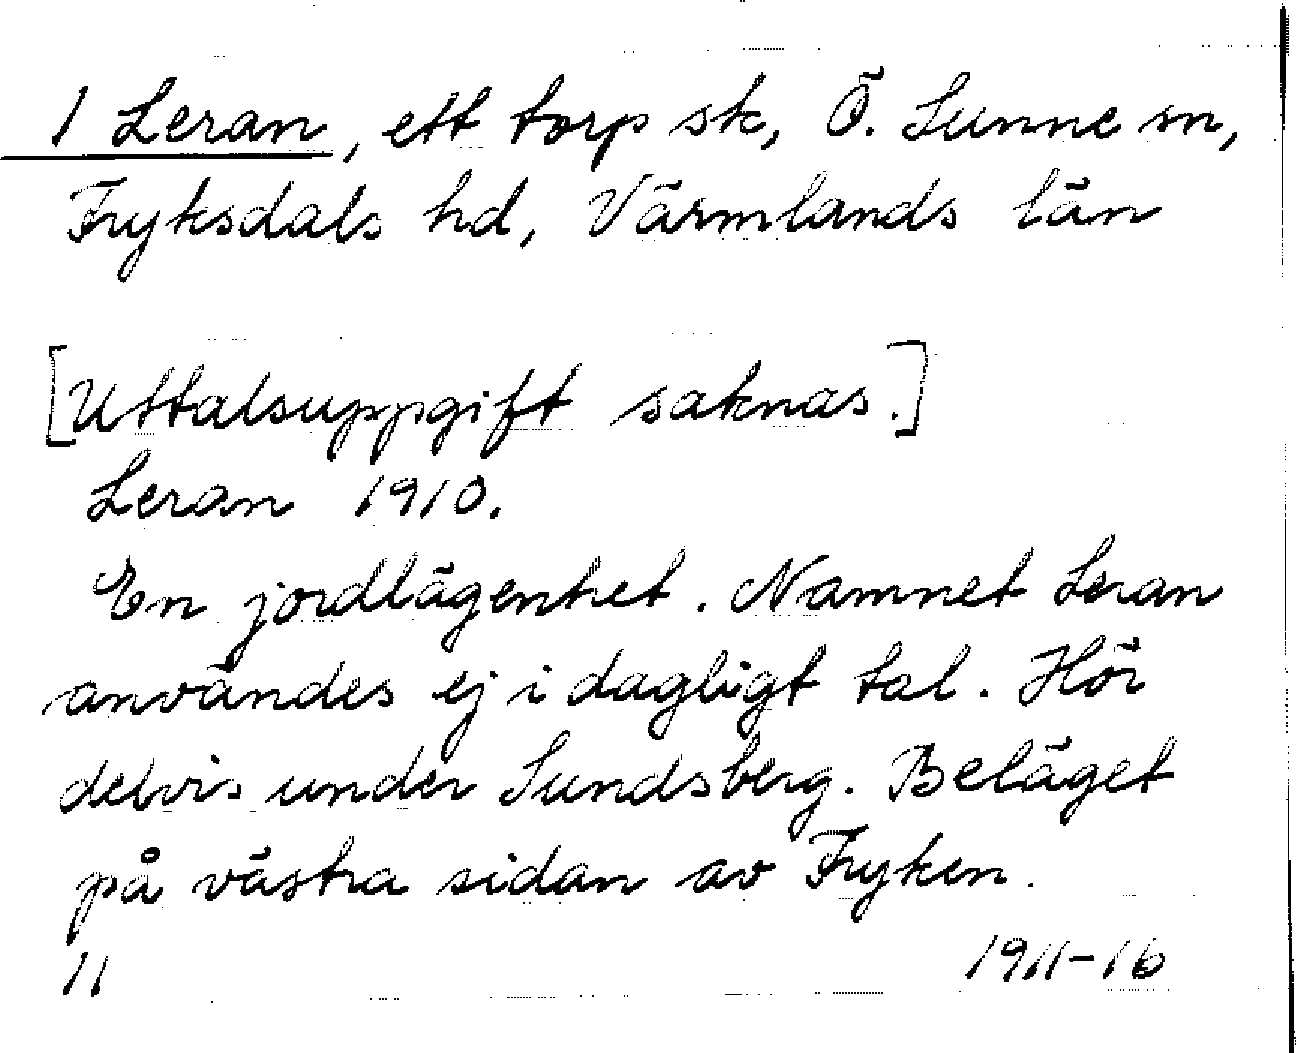 1 Leran, ett torp sk, Ö. Sunne sn,
Fryksdals hd, Värmlands län
[Uttalsuppgift saknas.]
Leran 1910.
En jordlägenhet. Namnet Leran
användes ej i dagligt tal. Hör
delvis under Sundsberg. Beläget
på västra sidan av Fryken.
11 1911-16